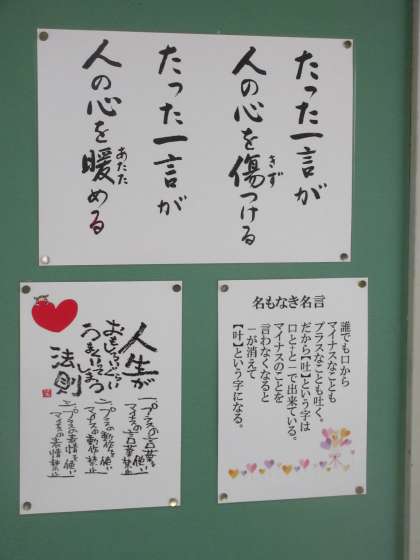 たった一言が
人の心を傷つける
きず
たった一言が
人の心を暖める
あたた
人生が
おもしろいくらい
うまくいってしまう
法則
一、プラスの言葉を使い
マイナスの言葉禁止
二、プラスの動作を使い
マイナスの動作禁止
三、プラスの表情を使い
マイナスの表情禁止
名もなき名言
誰でも口から
マイナスなことも
プラスなことも吐く。
だから【吐】という字は
口と+と−で出来ている。
マイナスのことを
言わなくなると
−が消えて
【叶】という字になる。